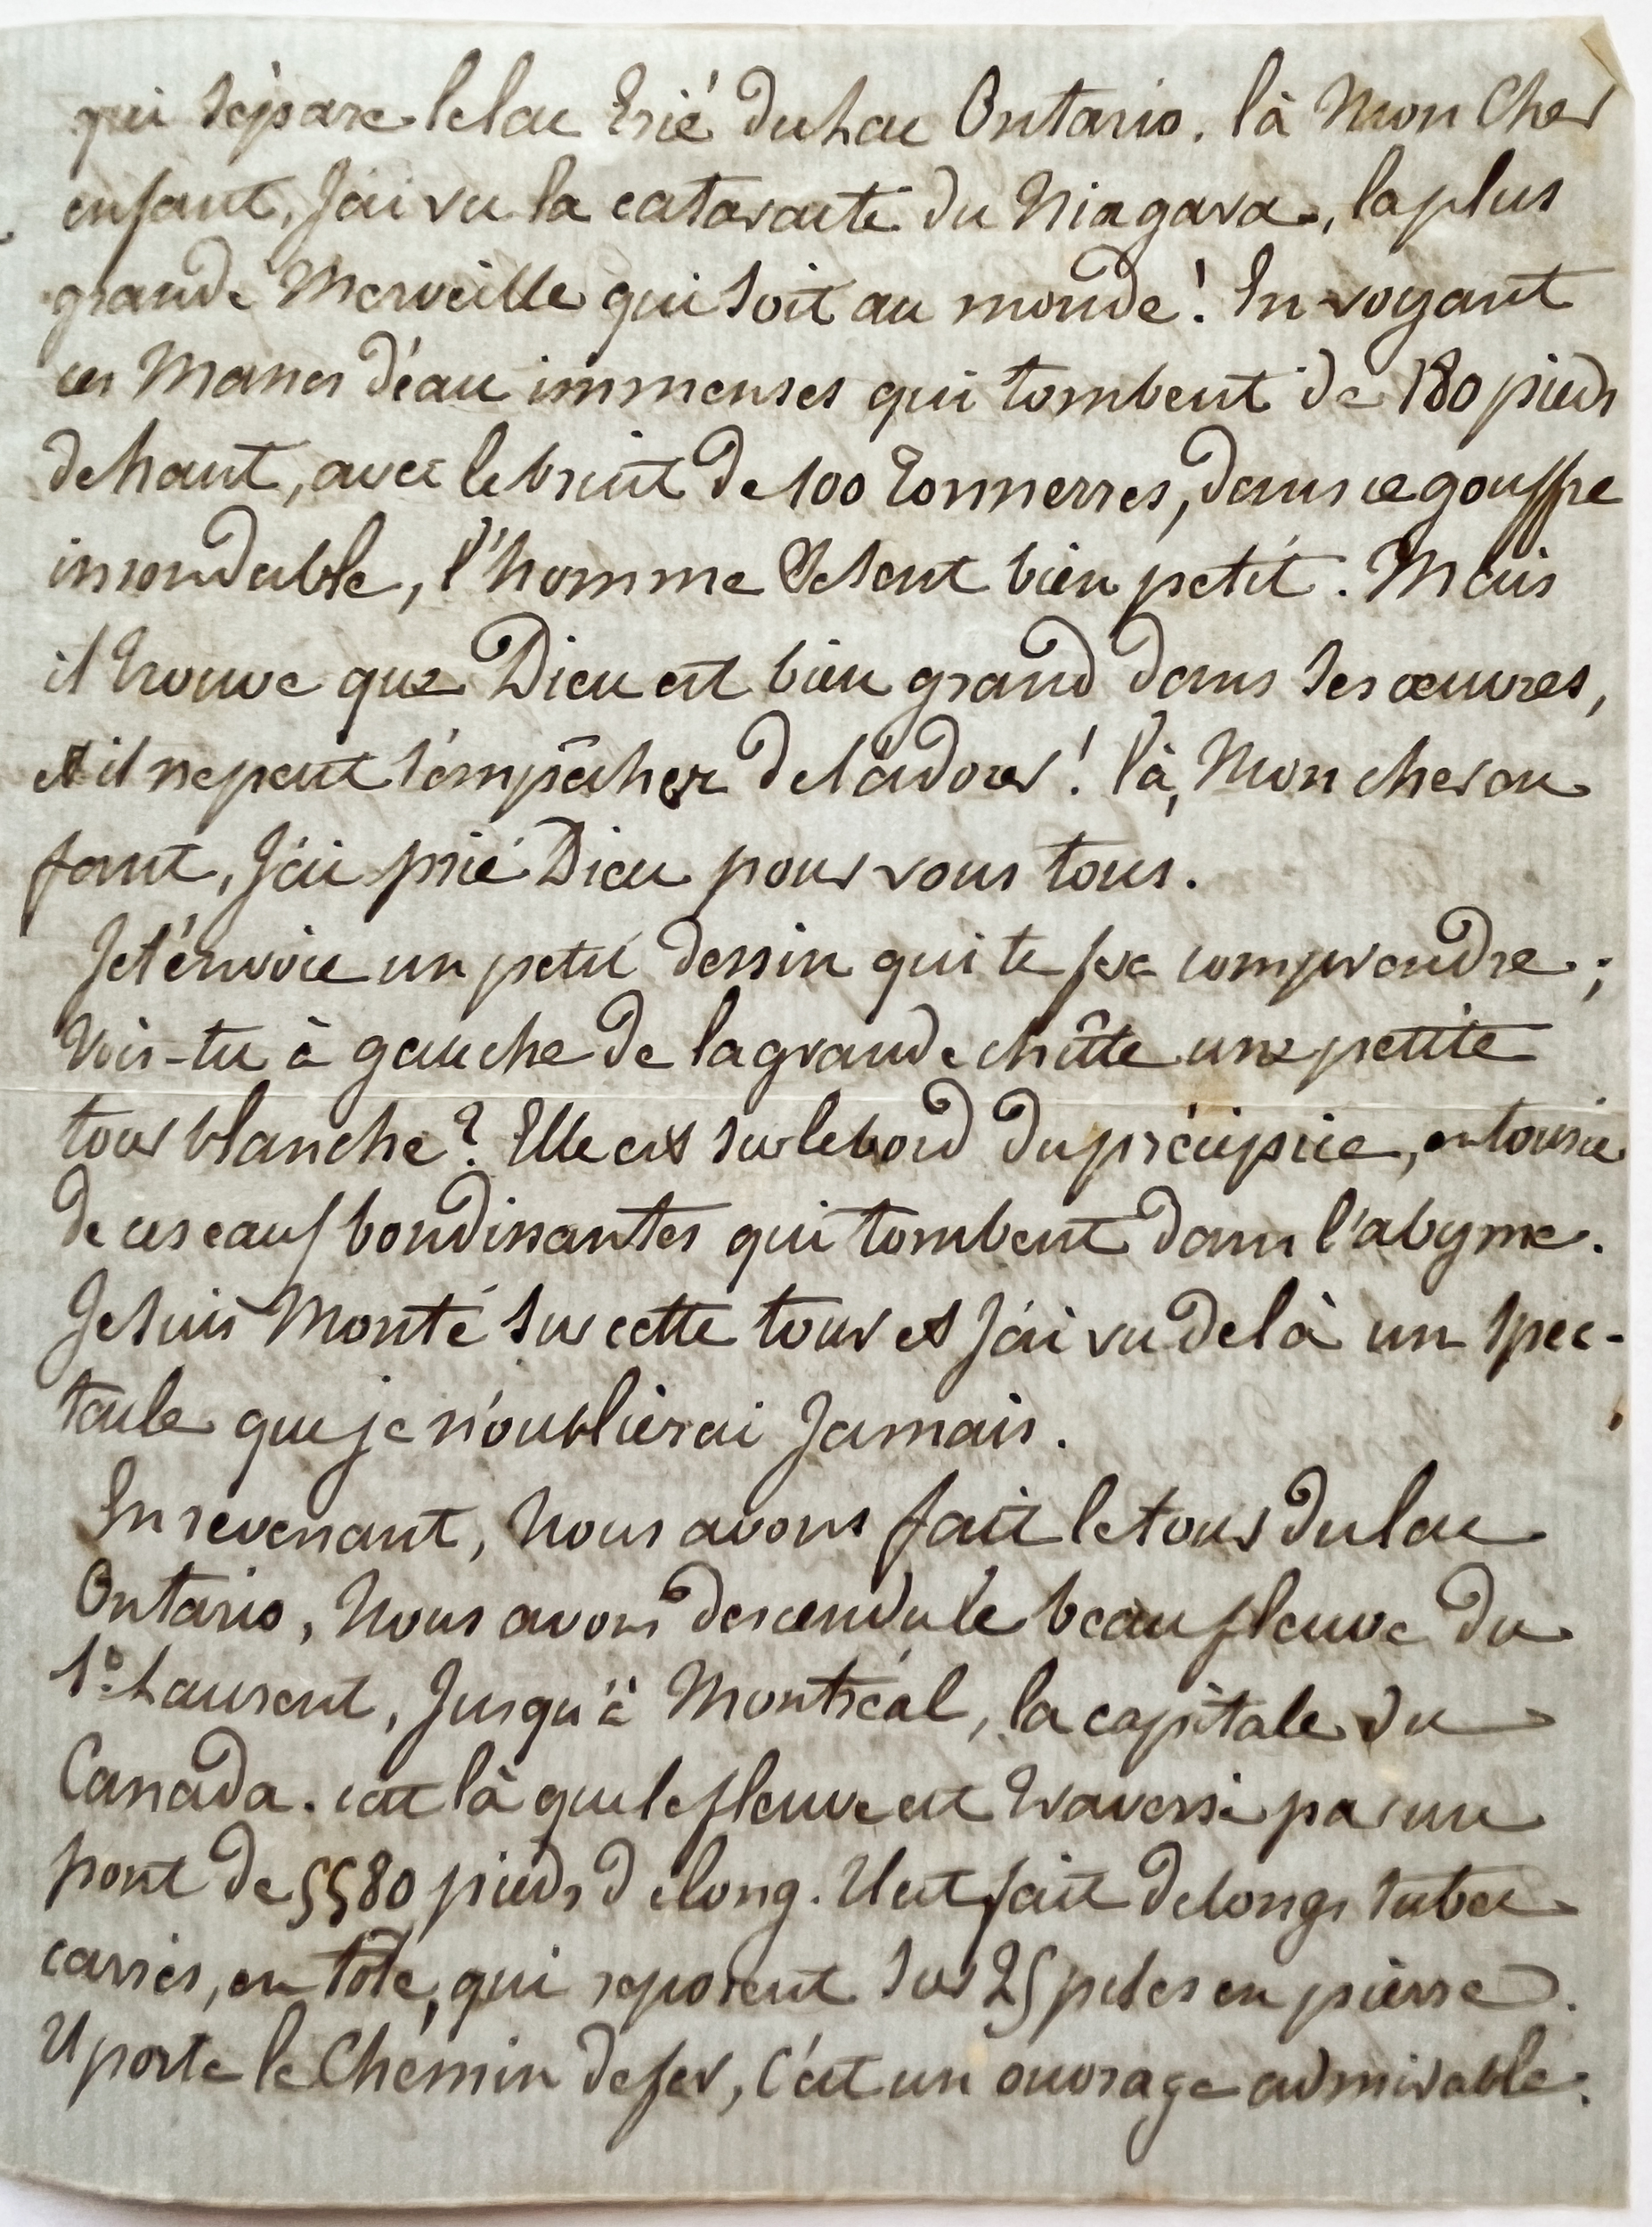 qui sépare le lac Erié du Lac Ontario. là Mon Cher
enfant, J'ai vu la cataracte du Niagara, la plus
grande Merveille qui soit au monde! En voyant
ces Masses d'eau immenses qui tombent de 180 pieds
de haut, avec le bruit de 100 Tonnerres, dans ce gouffre
insondable, l'homme Se sent bien petit. Mais
il trouve que Dieu est bien grand dans ses œuvres,
et il ne peut s'empêcher de l'adorer! là, Mon cher en
fant, J'ai prié Dieu pour vous tous.
Je t'envoie un petit dessin qui te fera comprendre;
Vois-tu à gauche de la grande chûte une petite
tour blanche? Elle est sur le bord du précipice, entourée
de ces eaux bondissantes qui tombent dans l'abyme.
Je suis Monté sur cette tour et J'ai vu de là un spec-
tacle que je n'oublierai Jamais.
En revenant, Nous avons fait le tour du lac
Ontario, Nous avons descendu le beau fleuve du
St Laurent, Jusqu'à Montréal, la capitale du
Canada. c'est là que le fleuve est traversé par un
pont de 5580 pieds de long. Il est fait de longs tubes
carrés, en tôle, qui reposent sur 25 piles en pierre.
Il porte le Chemin de fer, c'est un ouvrage admirable.